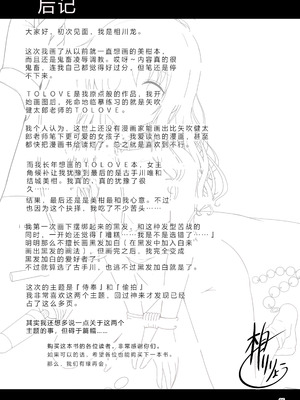 后记
大家好，初次见面，我是相川龙。
这次我画了从以前就一直想画的美柑本，
而且还是鬼畜凌辱调教。哎呀~内容真的很
鬼畜，连我自己都觉得过分，但笔还是停
不下来。
TOLOVE是我原点般的作品，我开
始画画后，死命地临摹练习的就是矢吹
健太郎老师的TOLOVE。
我个人认为，这世上还没有漫画家能画出比矢吹健太
郎老师笔下更可爱的女孩子，我爱读他的漫画，甚至
都快把漫画书给读烂了。总之就是喜欢到不行。
而我长年想画的TOLOVE本，女主
角候补让我犹豫到最后的是古手川唯和
结城美柑。我真的，真的犹豫了很
久……
结果，最后还是美柑最和我心意。不过
也因为这个抉择，我吃了不少苦头……
我第一次画下摆那起来的黑发，和这种发型苦战的
同时，一开始还觉得「糟糕……我是不是选错了……」
明明那么不擅长画黑发加白（在黑发中加入白来
画出黑发的画法），但画完之后，我完全变成
黑发加白的爱好者了。
不过就算选了古手川，也逃不过黑发加白就是了。
这次的主题是「侍奉」和「偷拍」
我非常喜欢这两个主题，回过神来才发现已经
占了这么多页。
其实我还想多说一点关于这两个
主题的事，但碍于篇幅……
购买这本书的各位读者，非常感谢你们。
如果可以的话，希望各位也能购买下一本书。
那么，我们有缘再会。